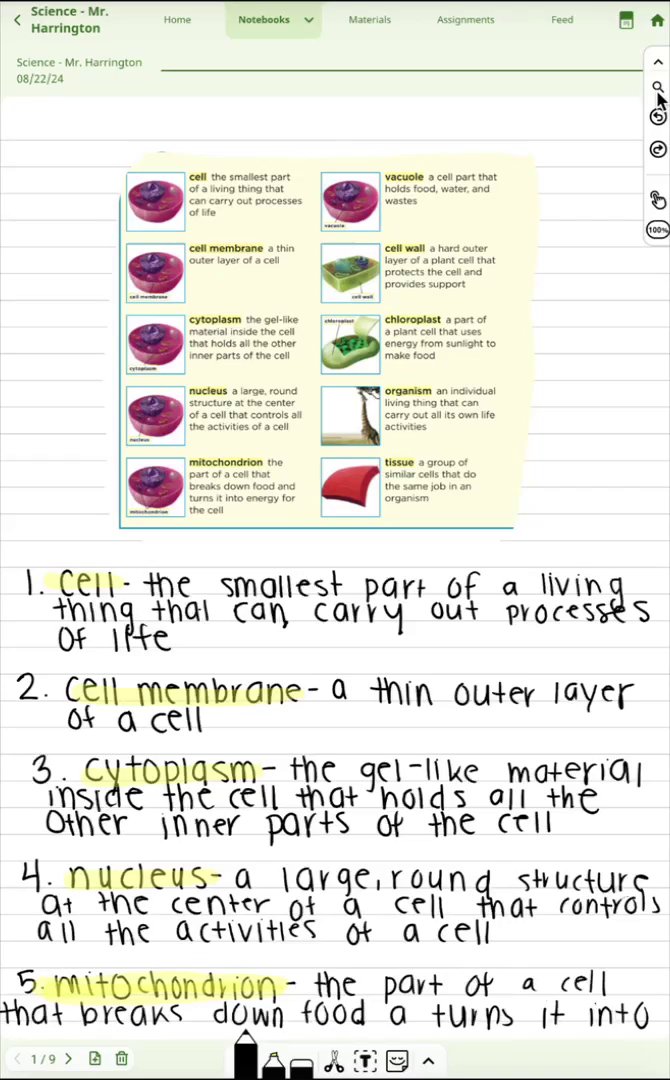 Science - Mr.
Harrington
Home
Notebooks
Materials
Assignments
Feed
Science - Mr. Harrington
08/22/24
100%
cell the smallest part
of a living thing that
can carry out processes
of life
cell membrane a thin
outer layer of a cell
cell membrane
cytoplasm the gel-like
material inside the cell
that holds all the other
inner parts of the cell
cytoplasm
nucleus a large, round
structure at the center
of a cell that controls all
the activities of a cell
nucleus
mitochondrion the
part of a cell that
breaks down food and
turns it into energy for
the cell
mitochondrion
vacuole a cell part that
holds food, water, and
wastes
vacuole
cell wall a hard outer
layer of a plant cell that
protects the cell and
provides support
cell wall
chloroplast
chloroplast a part of
a plant cell that uses
energy from sunlight to
make food
organism an individual
living thing that can
carry out all its own life
activities
tissue a group of
similar cells that do
the same job in an
organism
1. Cell- the smallest part of a living
thing that can carry out processes
of life
2. Cell membrane- a thin outer layer
of a cell
3. cytoplasm- the gel-like material
inside the cell that holds all the
other inner parts of the cell
4. nucleus- a large, round structure
at the center of a cell that controls
all the activities of a cell
5. mitochondrion- the part of a cell
that breaks down food a turns it into
1/9
T